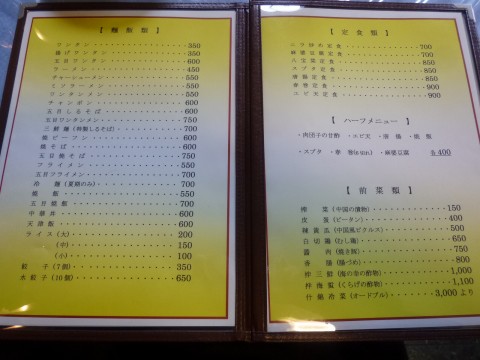 【麺飯類】
ワンタン・・・・・・・・・・350
揚げワンタン・・・・・・・・・・350
五目ワンタン・・・・・・・・・・600
ラーメン・・・・・・・・・・450
チャーシューメン・・・・・・・・・・550
ミソラーメン・・・・・・・・・・550
ワンタンメン・・・・・・・・・・550
チャンポン・・・・・・・・・・600
五目しるそば・・・・・・・・・・600
五目ワンタンメン・・・・・・・・・・750
三鮮麺(特製しるそば)・・・・・・・・・・700
焼ビーフン・・・・・・・・・・600
焼そば・・・・・・・・・・600
五目焼そば・・・・・・・・・・750
フライメン・・・・・・・・・・550
五目フライメン・・・・・・・・・・700
冷麺(夏期のみ)・・・・・・・・・・700
焼飯・・・・・・・・・・550
五目焼飯・・・・・・・・・・700
中華丼・・・・・・・・・・600
天津飯・・・・・・・・・・600
ライス(大)・・・・・・・・・・200
(中)・・・・・・・・・・150
(小)・・・・・・・・・・100
餃子(7個)・・・・・・・・・・350
水餃子(10個)・・・・・・・・・・650
【定食類】
ニラ炒め定食・・・・・・・・・・700
麻婆豆腐定食・・・・・・・・・・700
八宝菜定食・・・・・・・・・・850
スブタ定食・・・・・・・・・・850
溜腸定食・・・・・・・・・・850
春巻定食・・・・・・・・・・900
エビ天定食・・・・・・・・・・900
【ハーフメニュー】
・肉団子の甘酢・エビ天・溜腸・焼飯
・スブタ・春巻(6:00以后)・麻婆豆腐 各400
【前菜類】
搾菜(中国の漬物)・・・・・・・・・・150
皮蛋(ピータン)・・・・・・・・・・400
辣黄瓜(中国風ピクルス)・・・・・・・・・・500
白切鶏(むし鶏)・・・・・・・・・・650
醤肉(焼き豚)・・・・・・・・・・750
香腸(腸づめ)・・・・・・・・・・800
拌三鮮(海の幸の酢物)・・・・・・・・・・1,000
拌海蜇(くらげの酢物)・・・・・・・・・・1,100
什錦冷菜(オードブル)・・・・・・・・・・3,000より